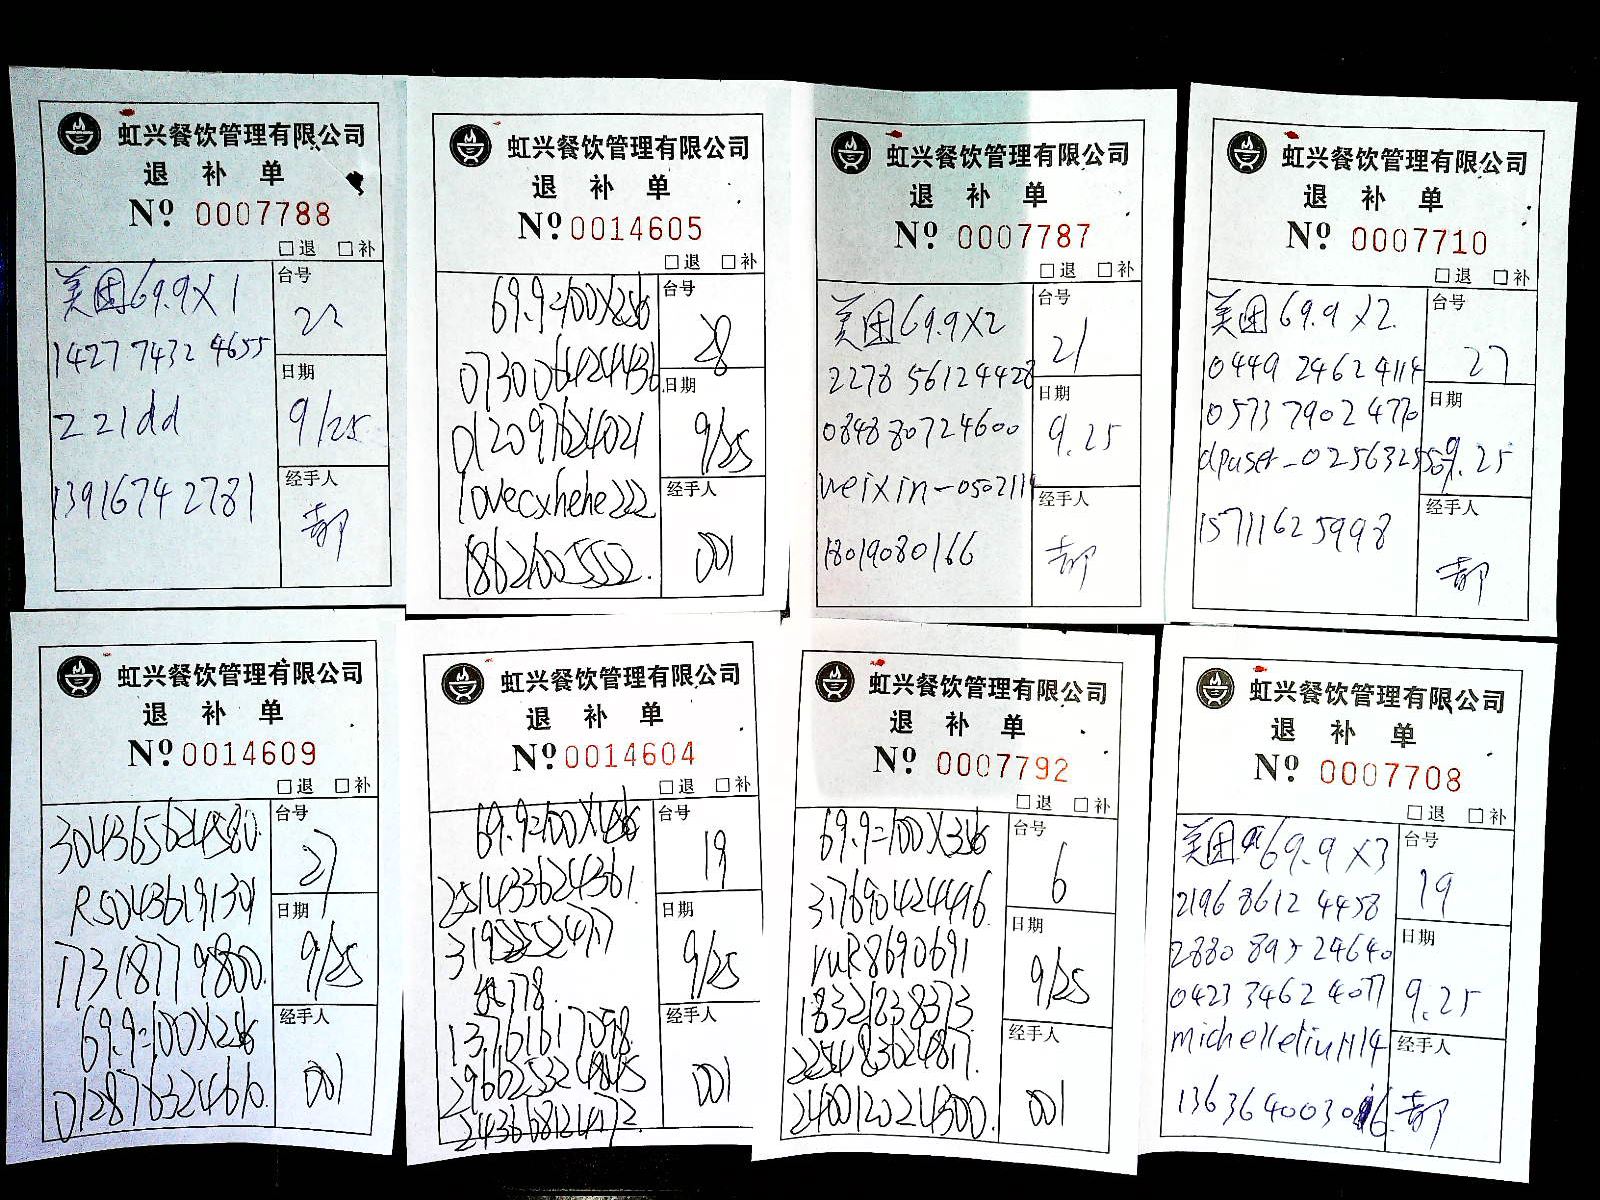 虹兴餐饮管理有限公司
退 补 单
Nº 0007788
□退 □补
美团69.9X1
1427 7432 4655
221dd
13916742781
台号
22
日期
9/25
经手人
郝
虹兴餐饮管理有限公司
退 补 单
Nº 0014605
□退 □补
69.9=100X2
0730 0642 4436
012097624021
lovecxhehe222
18621005552.
台号
28
日期
9/25
经手人
001
虹兴餐饮管理有限公司
退 补 单
Nº 0007787
□退 □补
美团69.9X2
2278 5612 4428
0848 8072 4600
weixin-0502111
18019080166
台号
21
日期
9.25
经手人
郝
虹兴餐饮管理有限公司
退 补 单
Nº 0007710
□退 □补
美团69.9X2
0449 2462 4114
0573 7902 4770
15711625998
台号
27
日期
9.25
经手人
郝
虹兴餐饮管理有限公司
退 补 单
Nº 0014609
□退 □补
304365624580.
RS0436191301
17318779800.
69.9=100X2
012876324610.
台号
27
日期
9/25
经手人
001
虹兴餐饮管理有限公司
退 补 单
Nº 0014604
□退 □补
69.9=100X4
251433624361.
13761617098.
296625324845
243668124172.
台号
19
日期
9/25
经手人
001
虹兴餐饮管理有限公司
退 补 单
Nº 0007792
□退 □补
69.9=100X3
317690424496.
YUR8690691
18321838373
225483624817.
240012024500.
台号
6
日期
9/25
经手人
001
虹兴餐饮管理有限公司
退 补 单
Nº 0007708
□退 □补
美团69.9X3
2196 8612 4458
2880 8952 4640
0423 3462 4077
michelleliu1114
台号
19
日期
9.25
经手人
郝